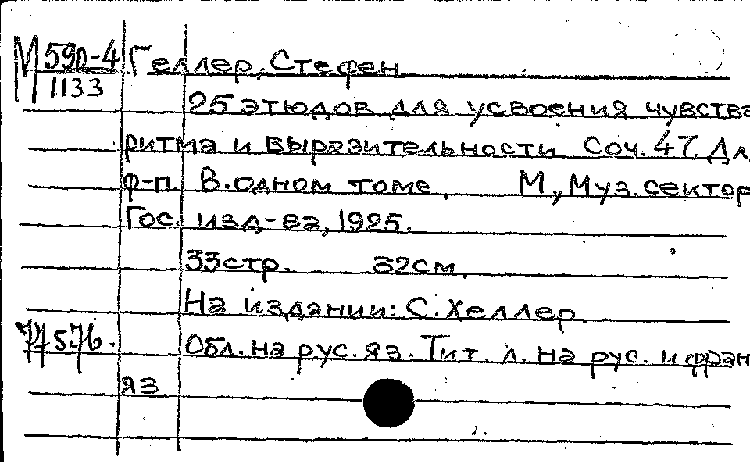 М 59п-4 Геллер, Стефен
1133
25 этюдов для усвоения чувства
ритма и выразительности. Соч. 47. Дл
ф-п. В одном томе. М., Муз. сектор
Гос. изд-ва, 1925.
33 стр. 32 см.
На издании: С. Хеллер
77576. Обл. на рус. яз. Тит. л. на рус. и фран
яз